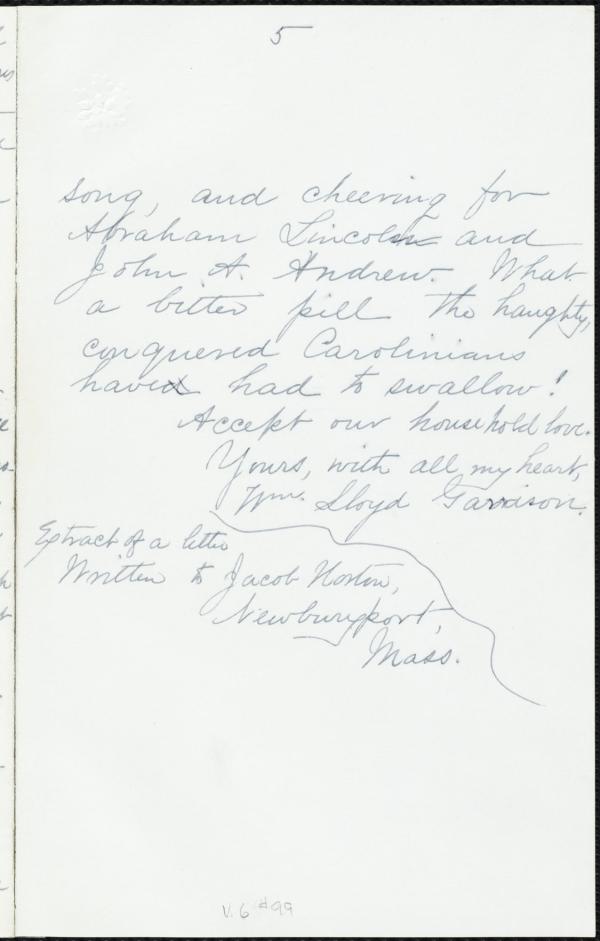 5
song, and cheering for
Abraham Lincoln and
John A. Andrew. What
a bitter pill the haughty,
conquered Carolinians
have had to swallow!
Accept our household love.
Yours, with all my heart,
Wm. Lloyd Garrison.
Extract of a letter
Written to Jacob Horton,
Newburyport,
Mass.
V. 6 #99